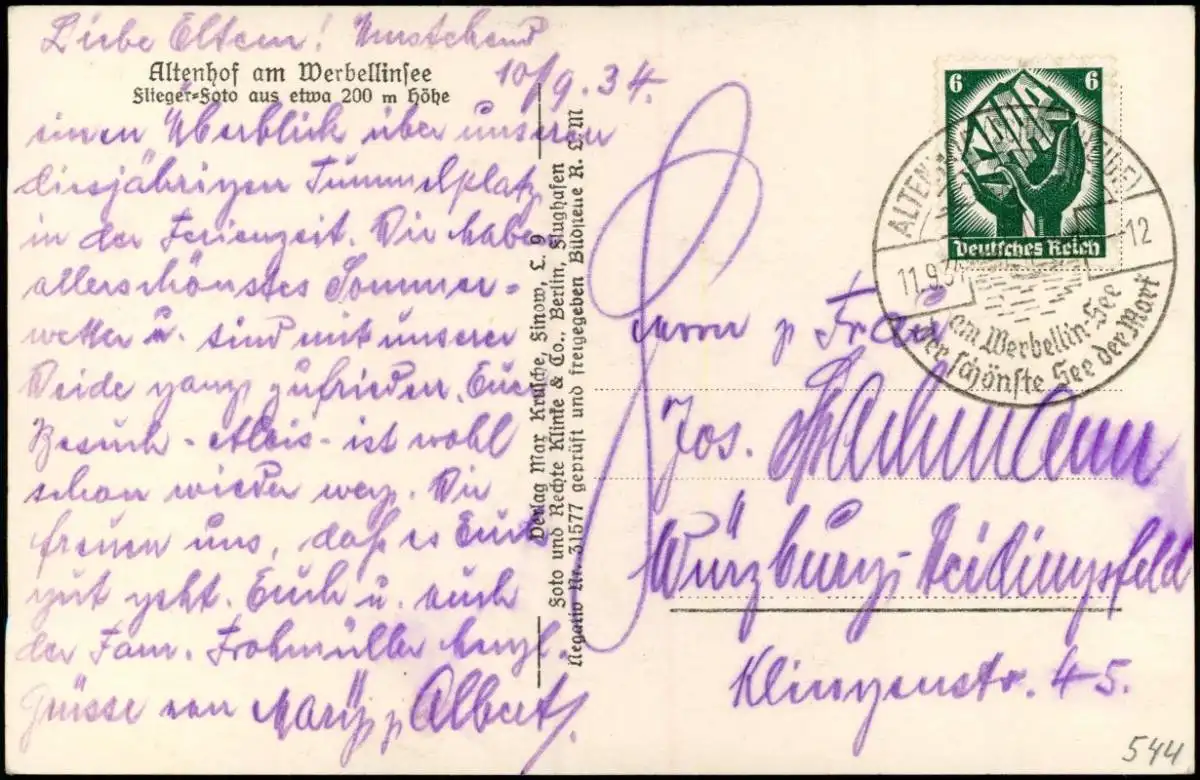 Liebe Eltern! Umstehend
10/9.34.
Altenhof am Werbellinsee
Flieger-Foto aus etwa 200 m Höhe
einen Überblick über unseren
diesjährigen Tummelplatz
in der Ferienzeit. Wir haben
allerschönstes Sommer-
wetter u. sind mit unserer
Weide ganz zufrieden. Euer
Besuch - Alois - ist wohl
schon wieder weg. Wir
freuen uns, daß es Euch
gut geht. Euch u. auch
der Fam. Frohmüller herzl.
Grüsse von Alber
Verlag Max Krutsche, Finow, L. 9
Foto und Rechte Klinke & Co., Berlin, Flughafen
Negativ Nr. 31577 geprüft und freigegeben Bildstelle R. L. M
6 6
SAAR
Deutsches Reich
ALTENHOF
11.9.34 12
am Werbellin-See
der schönste See der Mark
Herrn & Frau
Jos.
Würzburg-Heidingsfeld
Klingenstr. 45.
544